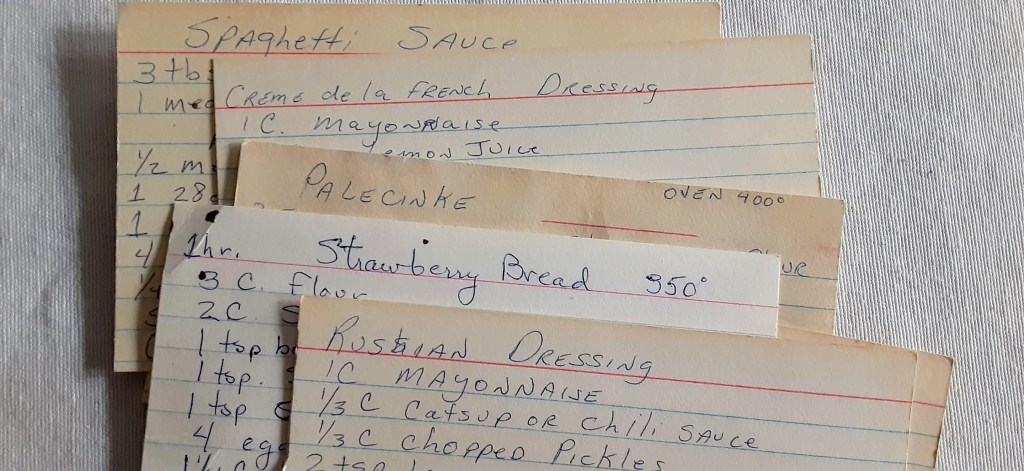 Spaghetti Sauce
3 tbs
1 med
1/2 m
1 28
1
4
Creme de la French Dressing
1 C. Mayonnaise
emon Juice
Palecinke OVEN 400°
UR
1 hr. Strawberry Bread 350°
3 C. Flour
2 C. S
1 tsp b
1 tsp.
1 tsp
4 egg
Russian Dressing
1 C Mayonnaise
1/3 C Catsup or Chili Sauce
1/3 C Chopped Pickles
2 tsp